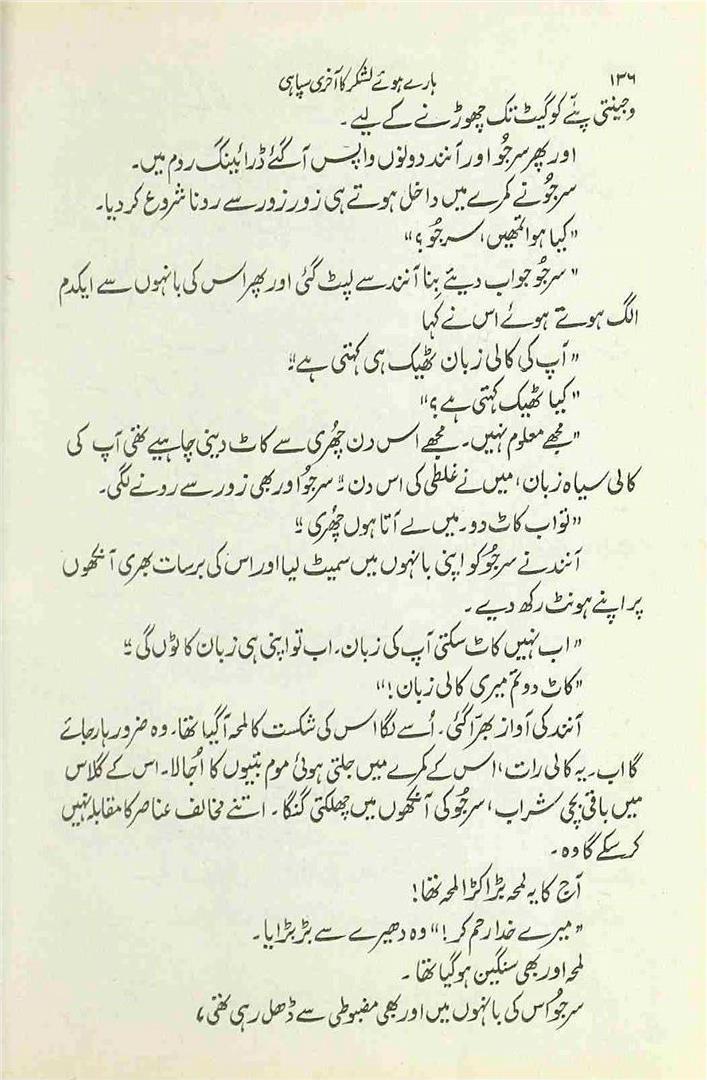 ۱۳۶ ہارے ہوئے لشکر کا آخری سپاہی
وجینتی پنّے کو گیٹ تک چھوڑنے کے لیے۔
اور پھر سرجُو اور آنند دونوں واپس آگئے ڈرائینگ روم میں۔
سرجُو نے کمرے میں داخل ہوتے ہی زور زور سے رونا شروع کر دیا۔
”کیا ہوا تمھیں، سرجُو؟“
”سرجُو جواب دیئے بِنا آنند سے لپٹ گئی اور پھر اس کی بانہوں سے ایکدم
الگ ہوتے ہوئے اس نے کہا
”آپ کی کالی زبان ٹھیک ہی کہتی ہے“
”کیا ٹھیک کہتی ہے؟“
”مجھے معلوم نہیں۔ مجھے اس دن چھُری سے کاٹ دینی چاہیے تھی آپ کی
کالی سیاہ زبان، میں نے غلطی کی اس دن“ سرجُو اور بھی زور سے رونے لگی۔
”تو اب کاٹ دو۔ میں لے آتا ہوں چھُری“
آنند نے سرجُو کو اپنی بانہوں میں سمیٹ لیا اور اس کی برسات بھری آنکھوں
پر اپنے ہونٹ رکھ دیے۔
”اب نہیں کاٹ سکتی آپ کی زبان۔ اب تو اپنی ہی زبان کاٹوں گی“
”کاٹ دو تم میری کالی زبان!“
آنند کی آواز بھرّا گئی۔ اُسے لگا اس کی شکست کا لمحہ آگیا تھا۔ وہ ضرور ہار جائے
گا اب۔ یہ کالی رات، اس کے کمرے میں جلتی ہوئی موم بتیوں کا اُجالا۔ اس کے گلاس
میں باقی بچی شراب، سرجُو کی آنکھوں میں چھلکتی گنگا۔ اتنے مخالف عناصر کا مقابلہ نہیں
کر سکے گا وہ۔
آج کا یہ لمحہ بڑا کڑا لمحہ تھا!
”میرے خدا رحم کر!“ وہ دھیرے سے بڑبڑایا۔
لمحہ اور بھی سنگین ہوگیا تھا۔
سرجُو اُس کی بانہوں میں اور بھی مضبوطی سے ڈھل رہی تھی،